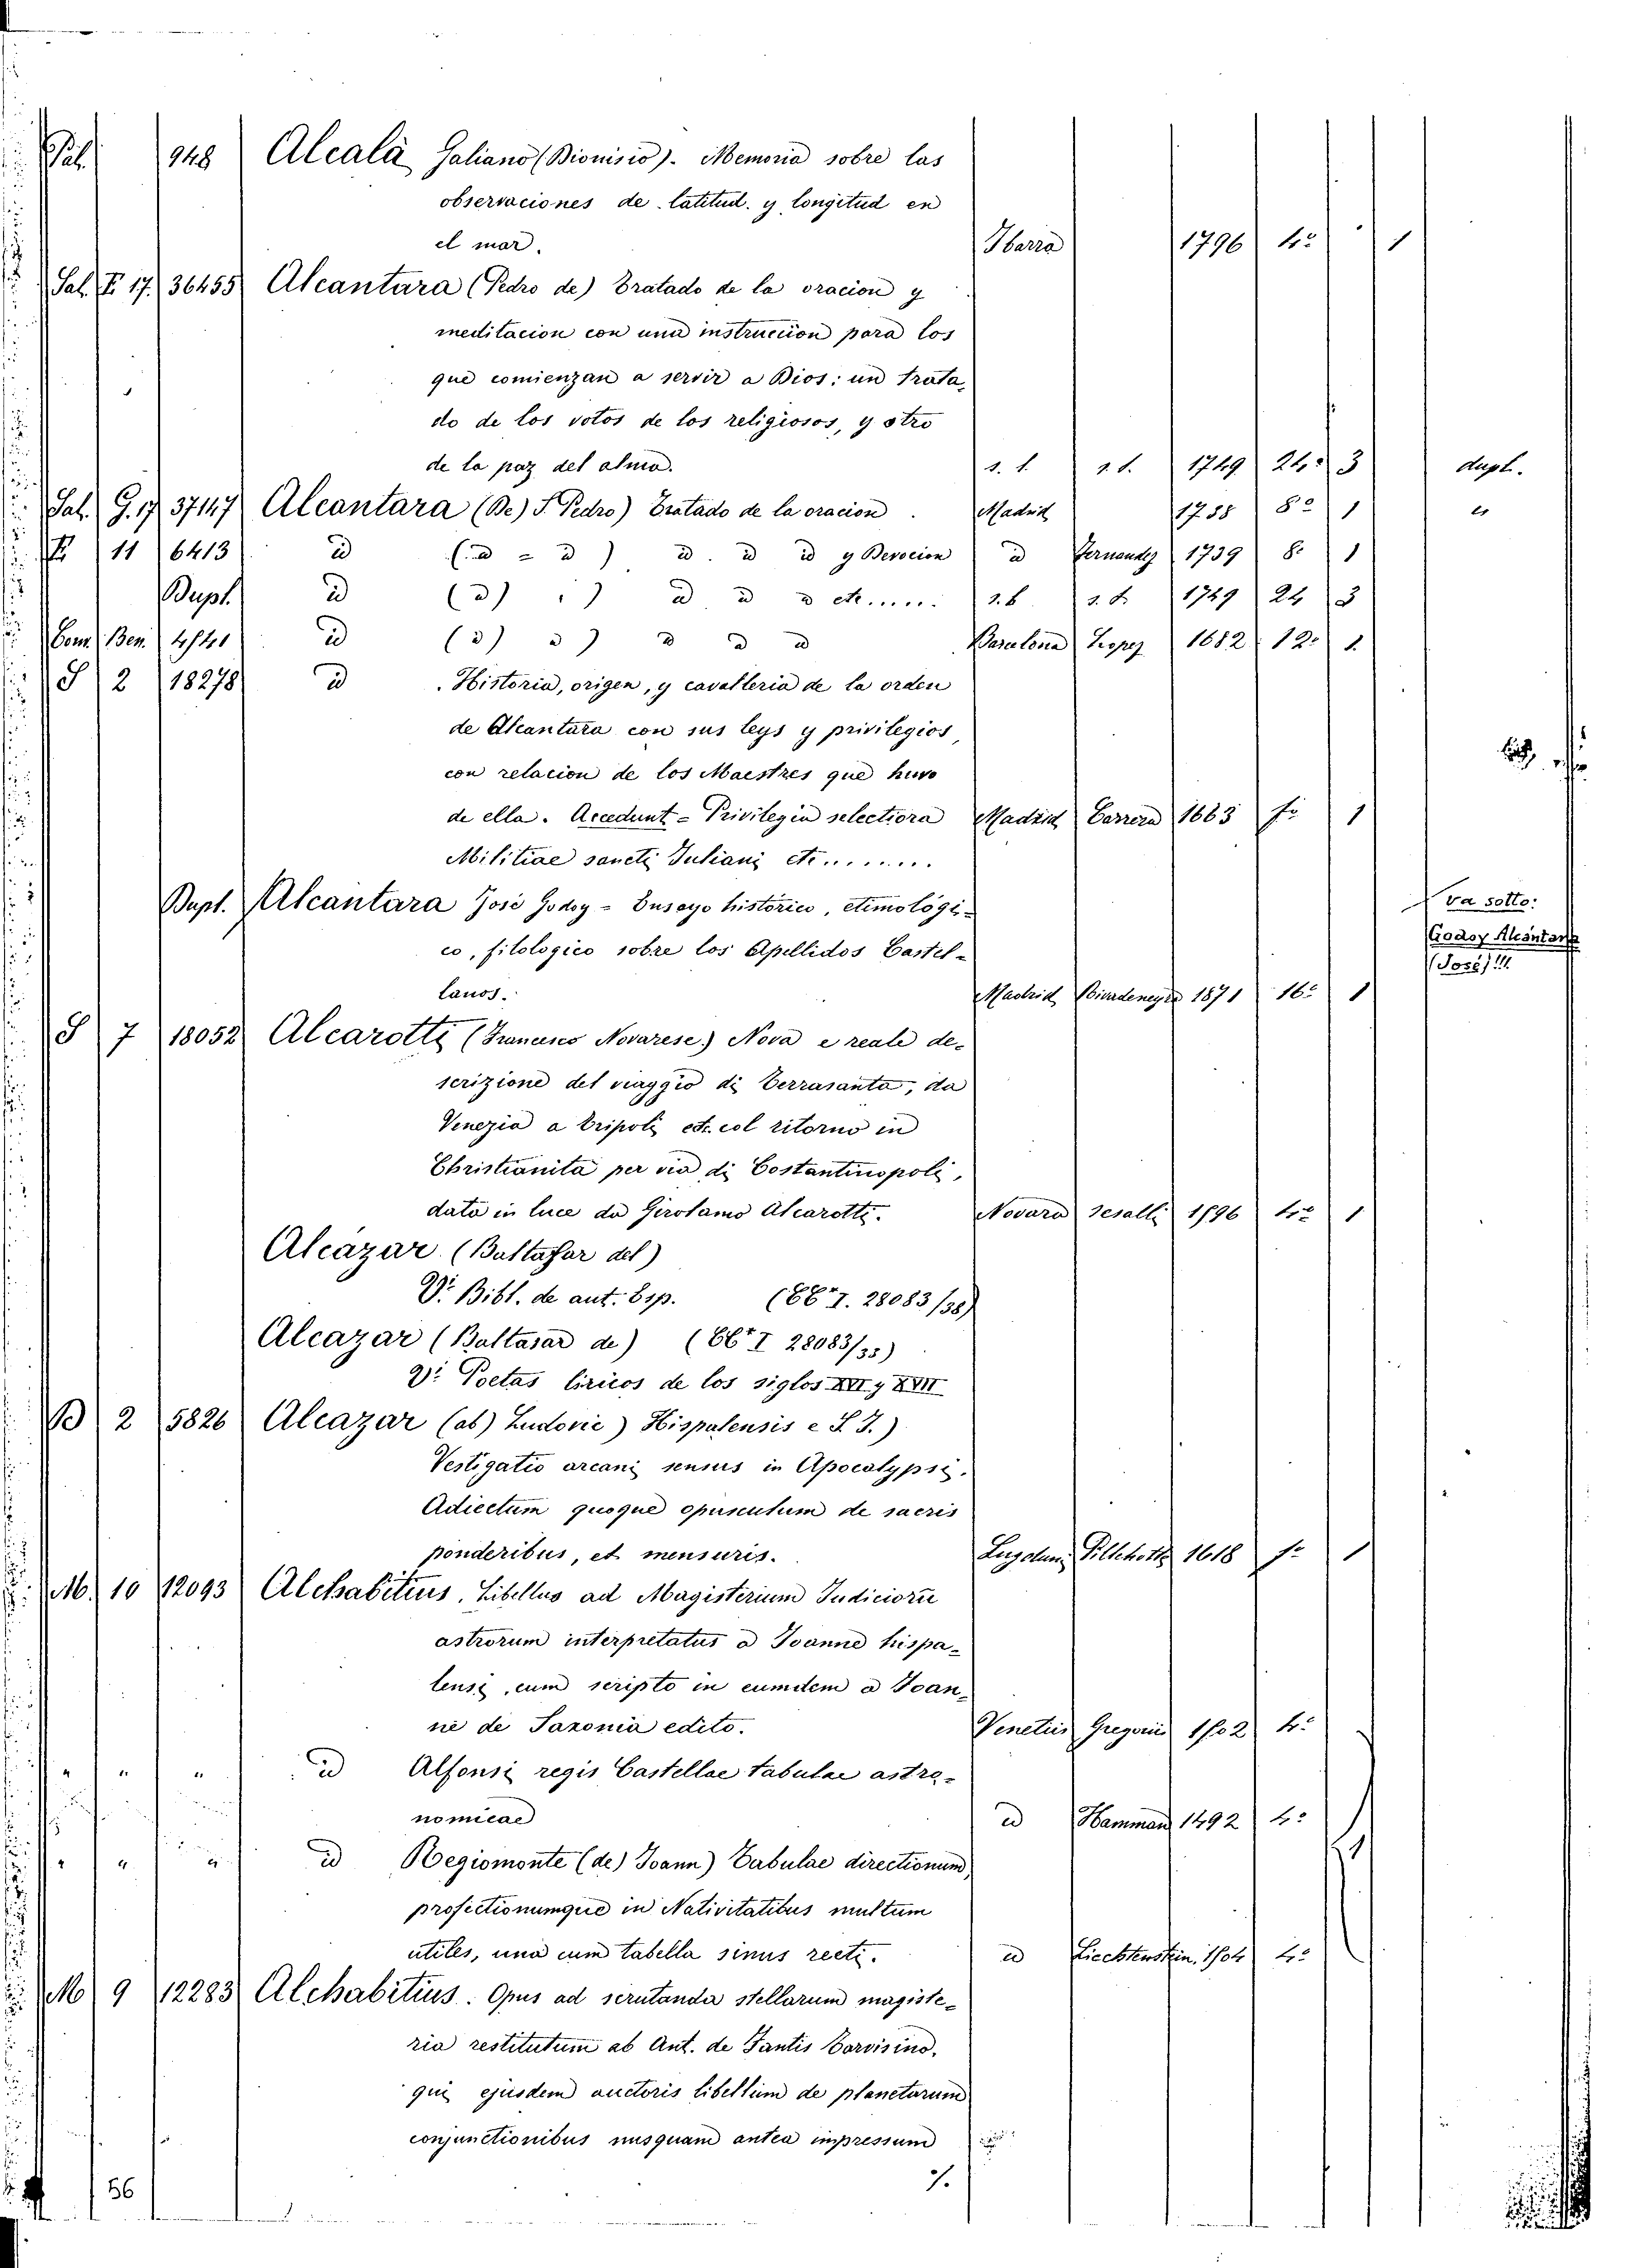 Pal. 948 Alcalà Galiano (Dionisio). Memoria sobre las
observaciones de latitud. y longitud en
el mar. Ibarra 1796 4º 1
Sal. E 17. 36455 Alcantara (Pedro de) Tratado de la oracion y
meditacion con una instruccion para los
que comienzan a servir a Dios: un trata
do de los votos de los religiosos, y otro
de la paz del alma. s. l. s. t. 1749 24º 3 dupl.
Sal. G. 17 37147 Alcantara (De) S. Pedro) Tratado de la oracion. Madrid 1738 8º 1
11 6413 id (id = id) id. id id y Devocion id Fernandez 1739 8º 1
Dupl. id (id) id) id id id etc....... s. l. s. t. 1749 24 3
Com. Ben. 4541 id (id) id) id id id Barcelona Lopez 1682 12º 1
S 2 18278 id . Historia, origen, y cavalleria de la orden
de Alcantara con sus leys y privilegios,
con relacion de los Maestres que huvo
de ella. Accedunt = Privilegia selectiora Madrid Carrera 1663 fº 1
Militiae sancti Juliani etc........
Dupl. Alcantara José Godoy = Ensayo histórico, etimológi-
co, filologico sobre los Apellidos Castel-
lanos. Madrid Rivadeneyra 1871 16º 1
va sotto:
Godoy Alcántara
(José)!!!
S 7 18052 Alcarotti (Francesco Novarese) Nova e reale de-
scrizione del viaggio di Terrasanta, da
Venezia a Tripoli etc. col ritorno in
Christianita per via di Costantinopoli,
data in luce da Girolamo Alcarotti. Novara Sesalli 1596 4º 1
Alcázar (Baltasar del)
Vº Bibl. de aut. Esp. (66⁺I. 28083/38)
Alcazar (Baltasar de) (66⁺I 28083/35)
Vº Poetas liricos de los siglos XVI y XVII
B 2 5826 Alcazar (ab) Ludovic) Hispalensis e S. J.)
Vestigatio arcani sensus in Apocalypsi.
Adiectum quoque opusculum de sacris
ponderibus, et mensuris. Lugduni Pillehotte 1618 fº 1
M. 10 12093 Alchabitius. Libellus ad Magisterium Judiciorū
astrorum interpretatus a Joanne hispa-
lensi, cum scripto in eumdem a Joan-
ne de Saxonia edito. Venetiis Gregoriis 1502 4º
" " " id Alfonsi regis Castellae tabulae astro-
nomicae id Hamman 1492 4º
" " " id Regiomonte (de) Joann) Tabulae directionum,
profectionumque in Nativitatibus multum
utiles, una cum tabella sinus recti. id Liechtenstein, 1504 4º 1
M 9 12283 Alchabitius. Opus ad scrutanda stellarum magiste-
ria restitutum ab Ant. de Fantis Tarvisino.
qui ejusdem auctoris libellum de planetarum
conjunctionibus nusquam antea impressum
./.
56